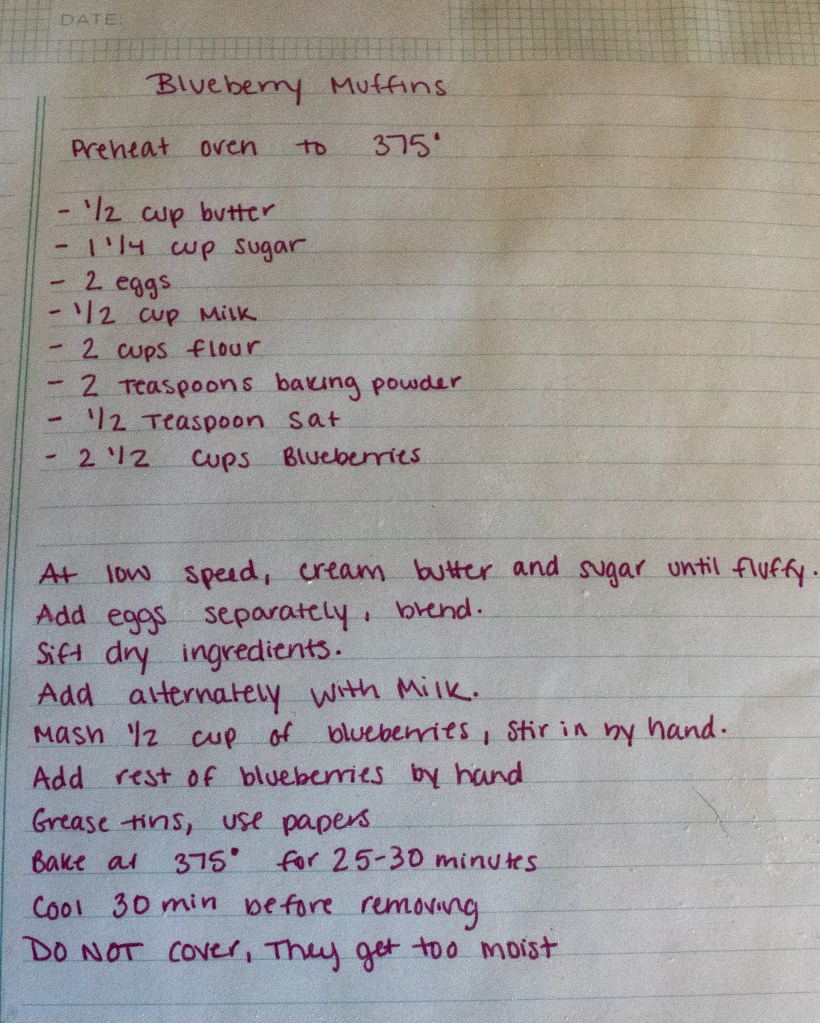 DATE:
Blueberry Muffins
Preheat oven to 375°
- 1/2 cup butter
- 1 1/4 cup sugar
- 2 eggs
- 1/2 cup Milk
- 2 cups flour
- 2 Teaspoons baking powder
- 1/2 Teaspoon Sat
- 2 1/2 cups Blueberries
At low speed, cream butter and sugar until fluffy.
Add eggs separately, blend.
Sift dry ingredients.
Add alternately with Milk.
Mash 1/2 cup of blueberries, stir in by hand.
Add rest of blueberries by hand
Grease tins, use papers
Bake at 375° for 25-30 minutes
Cool 30 min before removing
DO NOT cover, They get too moist